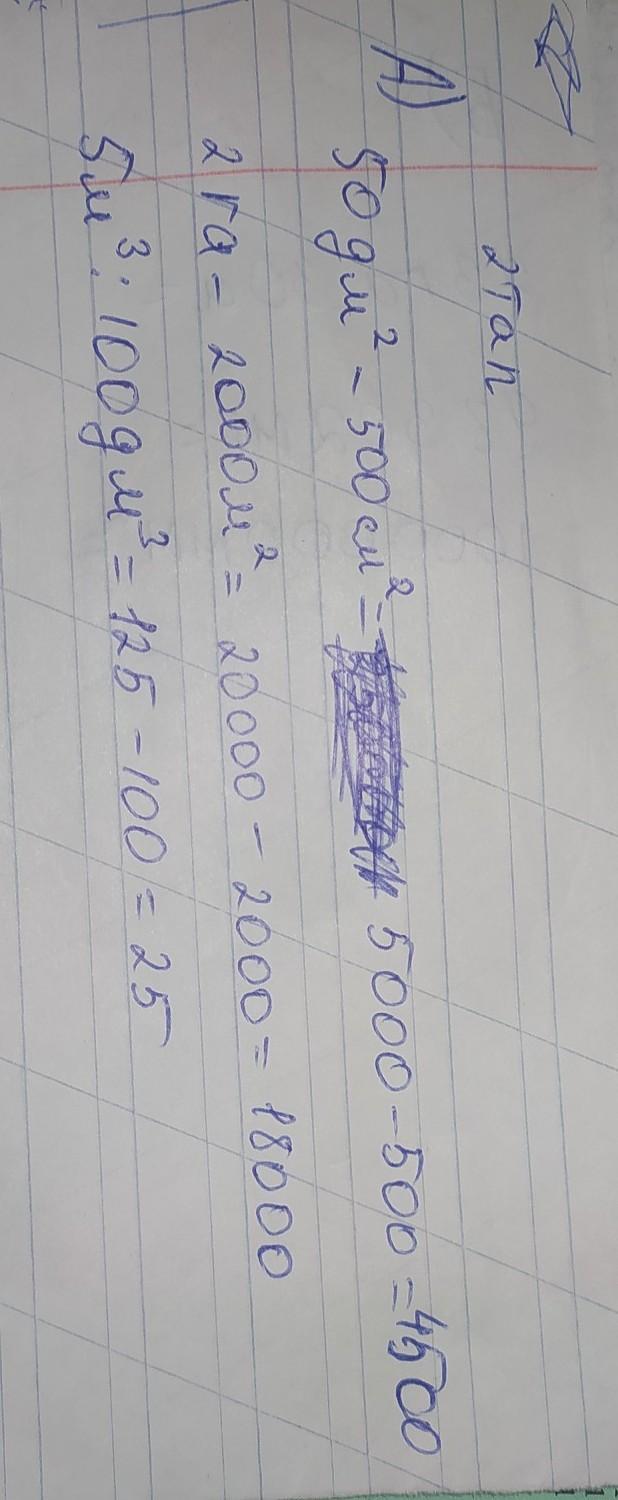 2тап
А)
50дм² - 500см² = 5000 - 500 = 4500
2 га - 2000м² = 20000 - 2000 = 18000
5м³ : 100дм³ = 125 - 100 = 25